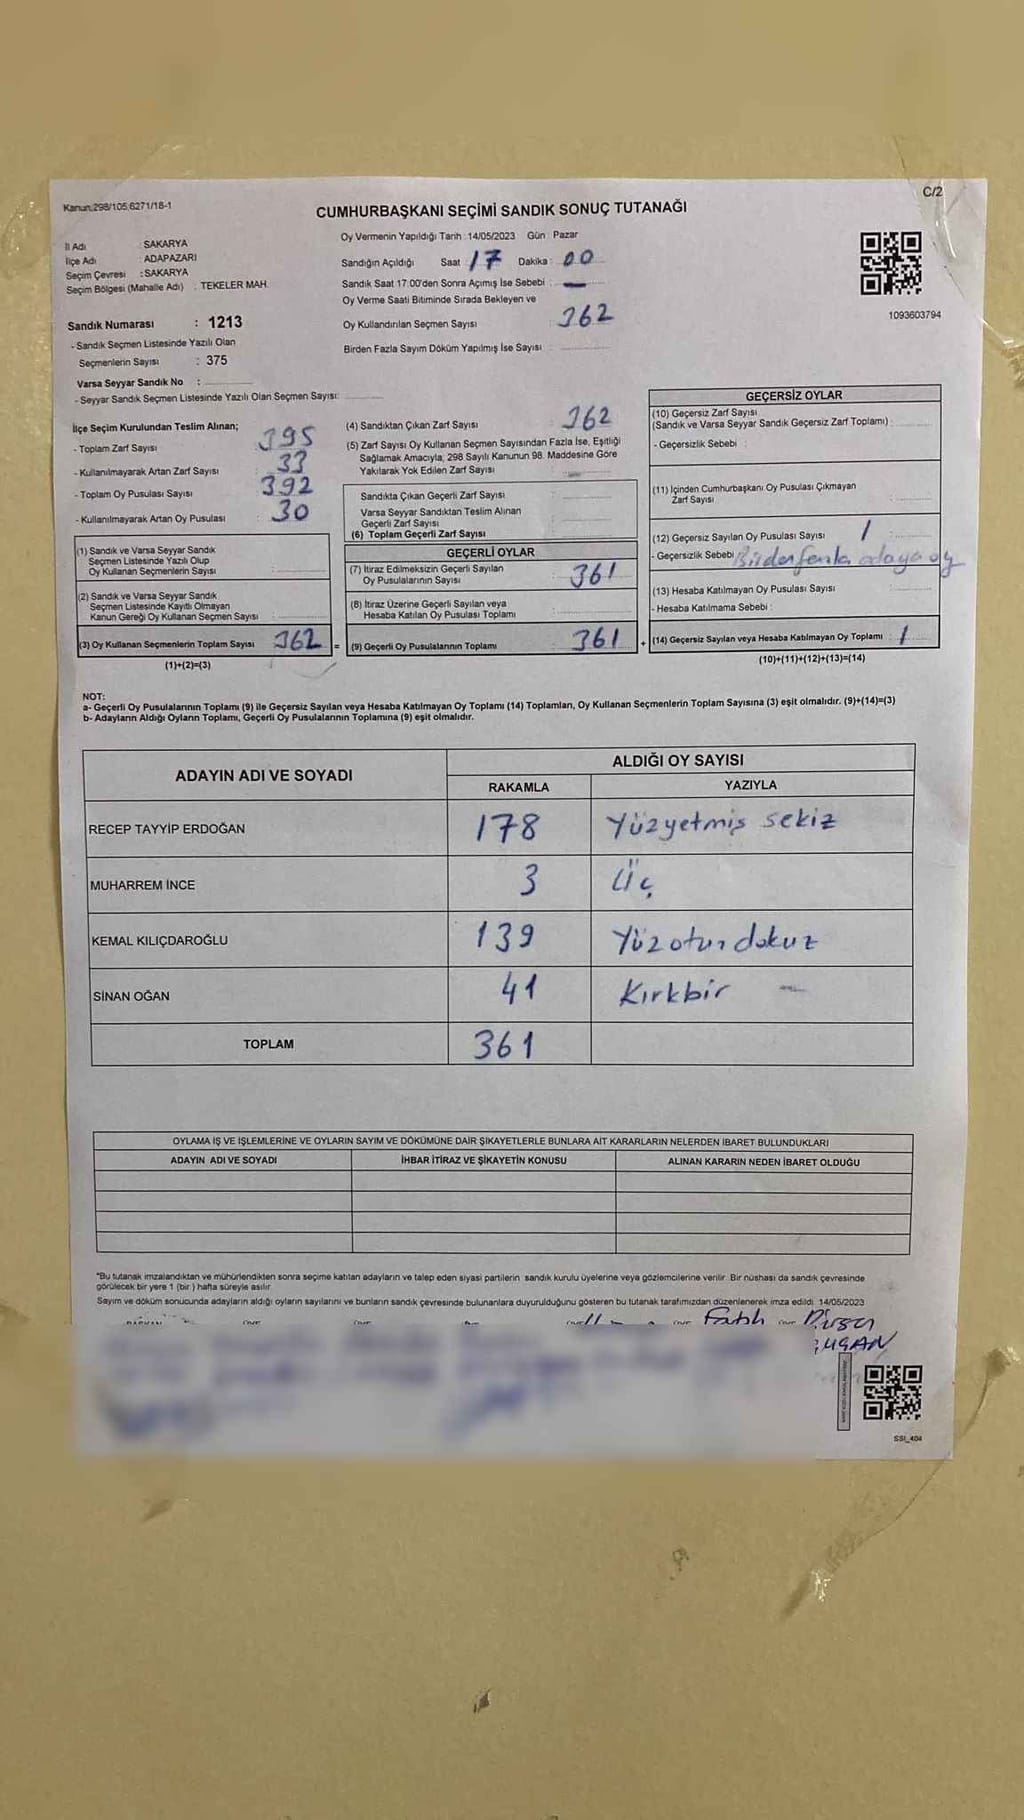 Kanun:298/105;6271/18-1
C/2
CUMHURBAŞKANI SEÇİMİ SANDIK SONUÇ TUTANAĞI
İl Adı : SAKARYA
İlçe Adı : ADAPAZARI
Seçim Çevresi : SAKARYA
Seçim Bölgesi (Mahalle Adı) : TEKELER MAH.
Oy Vermenin Yapıldığı Tarih :14/05/2023 Gün : Pazar
Sandığın Açıldığı Saat : 17 Dakika : 00
Sandık Saat 17.00'den Sonra Açımış İse Sebebi : —
Oy Verme Saati Bitiminde Sırada Bekleyen ve
Oy Kullandırılan Seçmen Sayısı : 362
Birden Fazla Sayım Döküm Yapılmış İse Sayısı :
1093603794
Sandık Numarası : 1213
- Sandık Seçmen Listesinde Yazılı Olan
Seçmenlerin Sayısı : 375
Varsa Seyyar Sandık No :
- Seyyar Sandık Seçmen Listesinde Yazılı Olan Seçmen Sayısı:
İlçe Seçim Kurulundan Teslim Alınan;
- Toplam Zarf Sayısı : 395
- Kullanılmayarak Artan Zarf Sayısı : 33
- Toplam Oy Pusulası Sayısı : 392
- Kullanılmayarak Artan Oy Pusulası : 30
(1) Sandık ve Varsa Seyyar Sandık
Seçmen Listesinde Yazılı Olup
Oy Kullanan Seçmenlerin Sayısı :
(2) Sandık ve Varsa Seyyar Sandık
Seçmen Listesinde Kayıtlı Olmayan
Kanun Gereği Oy Kullanan Seçmen Sayısı :
(3) Oy Kullanan Seçmenlerin Toplam Sayısı : 362 =
(1)+(2)=(3)
(4) Sandıktan Çıkan Zarf Sayısı : 362
(5) Zarf Sayısı Oy Kullanan Seçmen Sayısından Fazla İse, Eşitliği
Sağlamak Amacıyla, 298 Sayılı Kanunun 98. Maddesine Göre
Yakılarak Yok Edilen Zarf Sayısı :
Sandıkta Çıkan Geçerli Zarf Sayısı :
Varsa Seyyar Sandıktan Teslim Alınan
Geçerli Zarf Sayısı :
(6) Toplam Geçerli Zarf Sayısı :
GEÇERLİ OYLAR
(7) İtiraz Edilmeksizin Geçerli Sayılan
Oy Pusulalarının Sayısı : 361
(8) İtiraz Üzerine Geçerli Sayılan veya
Hesaba Katılan Oy Pusulası Toplamı :
(9) Geçerli Oy Pusulalarının Toplamı : 361 +
GEÇERSİZ OYLAR
(10) Geçersiz Zarf Sayısı
(Sandık ve Varsa Seyyar Sandık Geçersiz Zarf Toplamı) :
- Geçersizlik Sebebi :
(11) İçinden Cumhurbaşkanı Oy Pusulası Çıkmayan
Zarf Sayısı :
(12) Geçersiz Sayılan Oy Pusulası Sayısı : 1
- Geçersizlik Sebebi Birden fazla adaya oy
(13) Hesaba Katılmayan Oy Pusulası Sayısı :
- Hesaba Katılmama Sebebi :
(14) Geçersiz Sayılan veya Hesaba Katılmayan Oy Toplamı : 1
(10)+(11)+(12)+(13)=(14)
NOT:
a- Geçerli Oy Pusulalarının Toplamı (9) ile Geçersiz Sayılan veya Hesaba Katılmayan Oy Toplamı (14) Toplamları, Oy Kullanan Seçmenlerin Toplam Sayısına (3) eşit olmalıdır. (9)+(14)=(3)
b- Adayların Aldığı Oyların Toplamı, Geçerli Oy Pusulalarının Toplamına (9) eşit olmalıdır.
ADAYIN ADI VE SOYADI ALDIĞI OY SAYISI
RAKAMLA YAZIYLA
RECEP TAYYİP ERDOĞAN 178 Yüzyetmiş sekiz
MUHARREM İNCE 3 Üç
KEMAL KILIÇDAROĞLU 139 Yüzotuz dokuz
SİNAN OĞAN 41 Kırkbir —
TOPLAM 361
OYLAMA İŞ VE İŞLEMLERİNE VE OYLARIN SAYIM VE DÖKÜMÜNE DAİR ŞİKAYETLERLE BUNLARA AİT KARARLARIN NELERDEN İBARET BULUNDUKLARI
ADAYIN ADI VE SOYADI İHBAR İTİRAZ VE ŞİKAYETİN KONUSU ALINAN KARARIN NEDEN İBARET OLDUĞU
*Bu tutanak imzalandıktan ve mühürlendikten sonra seçime katılan adayların ve talep eden siyasi partilerin sandık kurulu üyelerine veya gözlemcilerine verilir. Bir nüshası da sandık çevresinde
görülecek bir yere 1 (bir ) hafta süreyle asılır.
Sayım ve döküm sonucunda adayların aldığı oyların sayılarını ve bunların sandık çevresinde bulunanlara duyurulduğunu gösteren bu tutanak tarafımızdan düzenlenerek imza edildi. 14/05/2023
Fatih
SSI_404